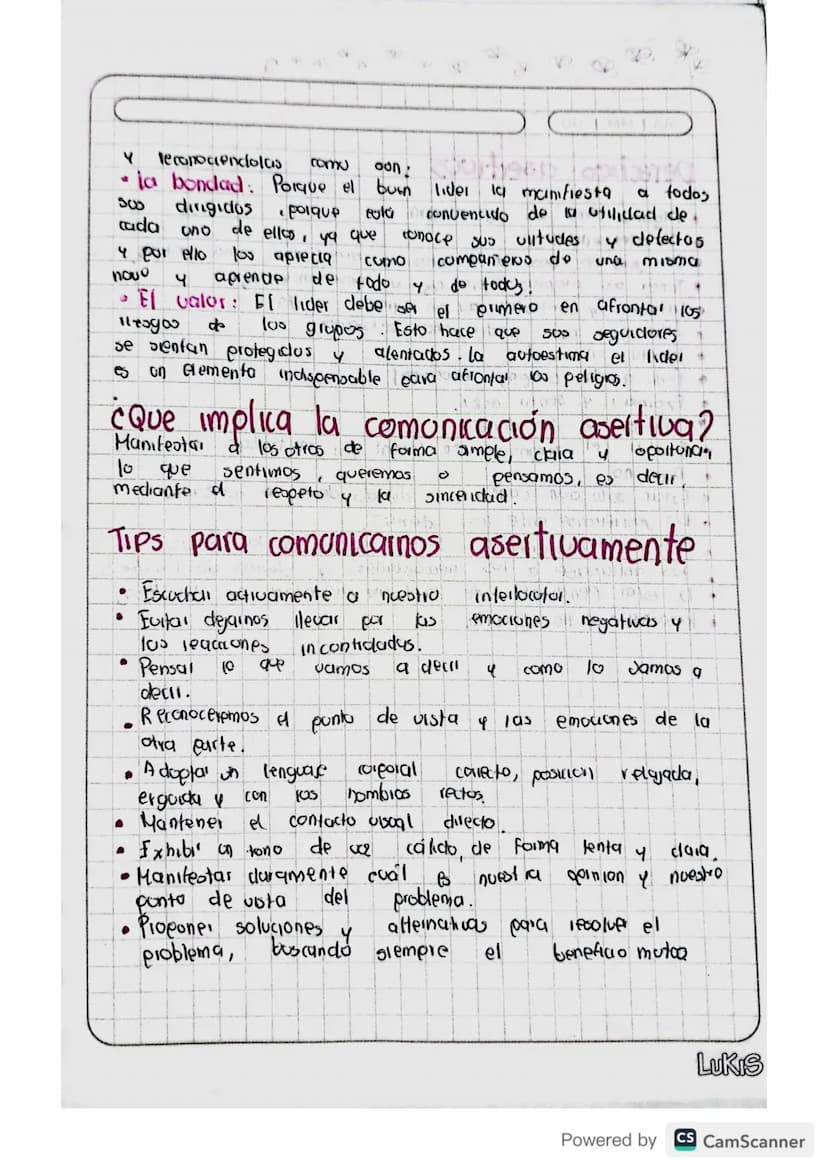 y reconociendolas como son:
• la bondad: Porque el buen lider la manifiesta a todos
sus dirigidos, porque está convencido de la utilidad de
cada uno de ellos, ya que conoce sus virtudes y defectos
y por ello los aprecia como compañeros de una misma
nave y aprende de todo y de todos!
• El valor: El lider debe ser el primero en afrontar los
riesgos de los grupos. Esto hace que sus seguidores
se sientan protegidos y alentados. la autoestima el lider
es un elemento indispensable para afrontar los peligros.
¿Que implica la comunicación asertiva?
Manifestar a los otros de forma simple, clara y oportuna,
lo que sentimos, queremos o pensamos, es decir,
mediante el respeto y la sinceridad.
Tips para comunicarnos asertivamente
• Escuchar activamente a nuestro interlocutor.
• Evitar dejarnos llevar por las emociones negativas y
las reacciones incontroladas.
• Pensar lo que vamos a decir y como lo vamos a
decir.
• Reconoceremos el punto de vista y las emociones de la
otra parte.
• Adoptar un lenguaje corporal correcto, posición relajada,
erguida y con los hombros rectos.
• Mantener el contacto visual directo.
• Exhibir un tono de voz cálido, de forma lenta y clara.
• Manifestar claramente cuál es nuestra opinion y nuestro
punto de vista del problema.
• Proponer soluciones y alternativas para resolver el
problema, buscando siempre el beneficio mutuo
LUKIS
Powered by CS CamScanner